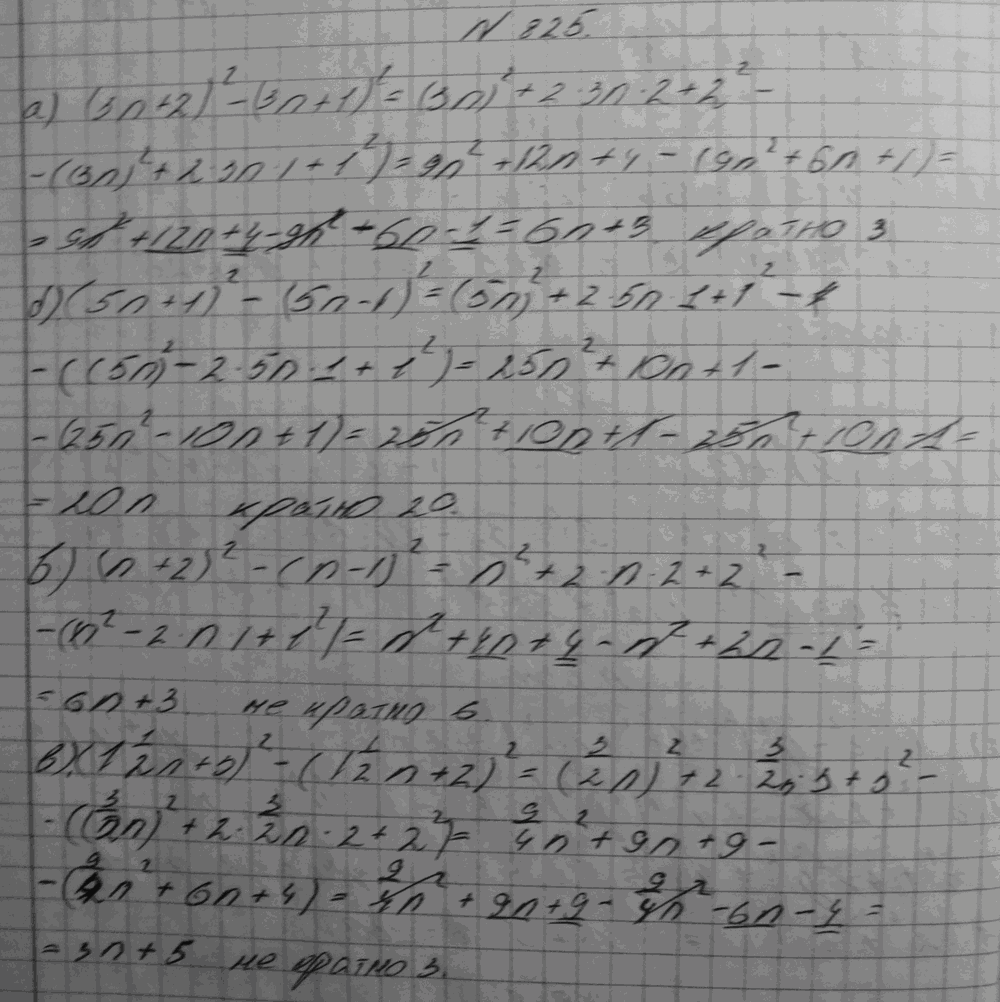 N 825.
а) (3n+2)² - (3n+1)² = (3n)² + 2·3n·2 + 2² -
-((3n)² + 2·3n·1 + 1²) = 9n² + 12n + 4 - (9n² + 6n + 1) =
= 9n² + 12n + 4 - 9n² + 6n - 1 = 6n + 3 кратно 3
б) (5n+1)² - (5n-1)² = (5n)² + 2·5n·1 + 1² -
-((5n)² - 2·5n·1 + 1²) = 25n² + 10n + 1 -
-(25n² - 10n + 1) = 25n² + 10n + 1 - 25n² + 10n - 1 =
= 20n кратно 20.
б) (n+2)² - (n-1)² = n² + 2·n·2 + 2² -
-(n² - 2·n·1 + 1²) = n² + 4n + 4 - n² + 2n - 1 =
= 6n + 3 не кратно 6.
в) (1 1/2 n + 3)² - (1 1/2 n + 2)² = (3/2 n)² + 2·3/2 n·3 + 3² -
-((3/2 n)² + 2·3/2 n·2 + 2²) = 9/4 n² + 9n + 9 -
-(9/4 n² + 6n + 4) = 9/4 n² + 9n + 9 - 9/4 n² - 6n - 4 =
= 3n + 5 не кратно 3.